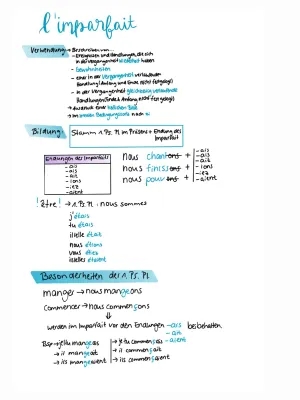 l'imparfait
Verwendung → Beschreiben von...
- Ereignissen und Handlungen, die sich
in der Vergangenheit wiederholt haben
- Gewohnheiten
- einer in der Vergangenheit verlaufenden
Handlung (Anfang und Ende nicht festgelegt)
- in der Vergangenheit gleichzeitig verlaufende
Handlungen (Ende & Anfang nicht festgelegt)
→ Ausdruck einer höflichen Bitte
→ Im irrealen Bedingungssatz nach si
Bildung Stamm 1. Ps. Pl. im Präsens + Endung des
Imparfait
Endungen des Imparfait
- ais
- ais
- ait
- ions
- iez
- aient
nous chantons +
nous finissons +
nous pouvons +
- ais
- ais
- ait
- ions
- iez
- aient
! être ! → 1. Ps. Pl.: nous sommes
j'étais
tu étais
il/elle était
nous étions
vous étiez
ils/elles étaient
Besonderheiten der 1. Ps. Pl.
manger → nous mangeons
commencer → nous commençons
⇓
werden im Imparfait vor den Endungen -ais beibehalten
-ait
-aient
Bsp → je/tu mangeais
→ il mangeait
→ ils mangeaient
→ je/tu commençais
→ il commençait
→ ils commençaient